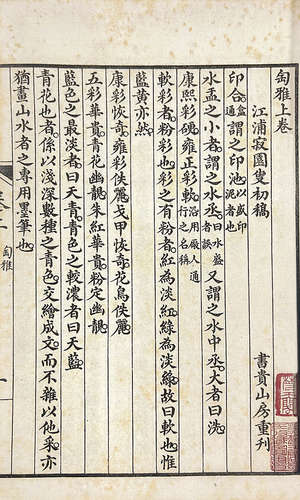 匋雅上卷
江浦寂園叟初稿
書貴山房重刊
印合通盒謂之印池以盛印泥者也
水盂之小者謂之水丞誤曰水盛者又謂之水中丞大者曰洗
康熙彩硬雍正彩軟沿用廠人通行之名稱
軟彩者粉彩也彩之有粉者紅為淡紅綠為淡綠故曰軟也惟
藍黄亦然
康彩恢奇雍彩佚麗戈甲恢奇花鳥佚麗
五彩華貴青花幽靚朱紅華貴粉定幽靚
藍色之最淡者曰天青青色之較濃者曰天藍
青花也者係以淺深數種之青色交繪成文而不雜以他采亦
猶畫山水者之專用墨筆也
匋雅